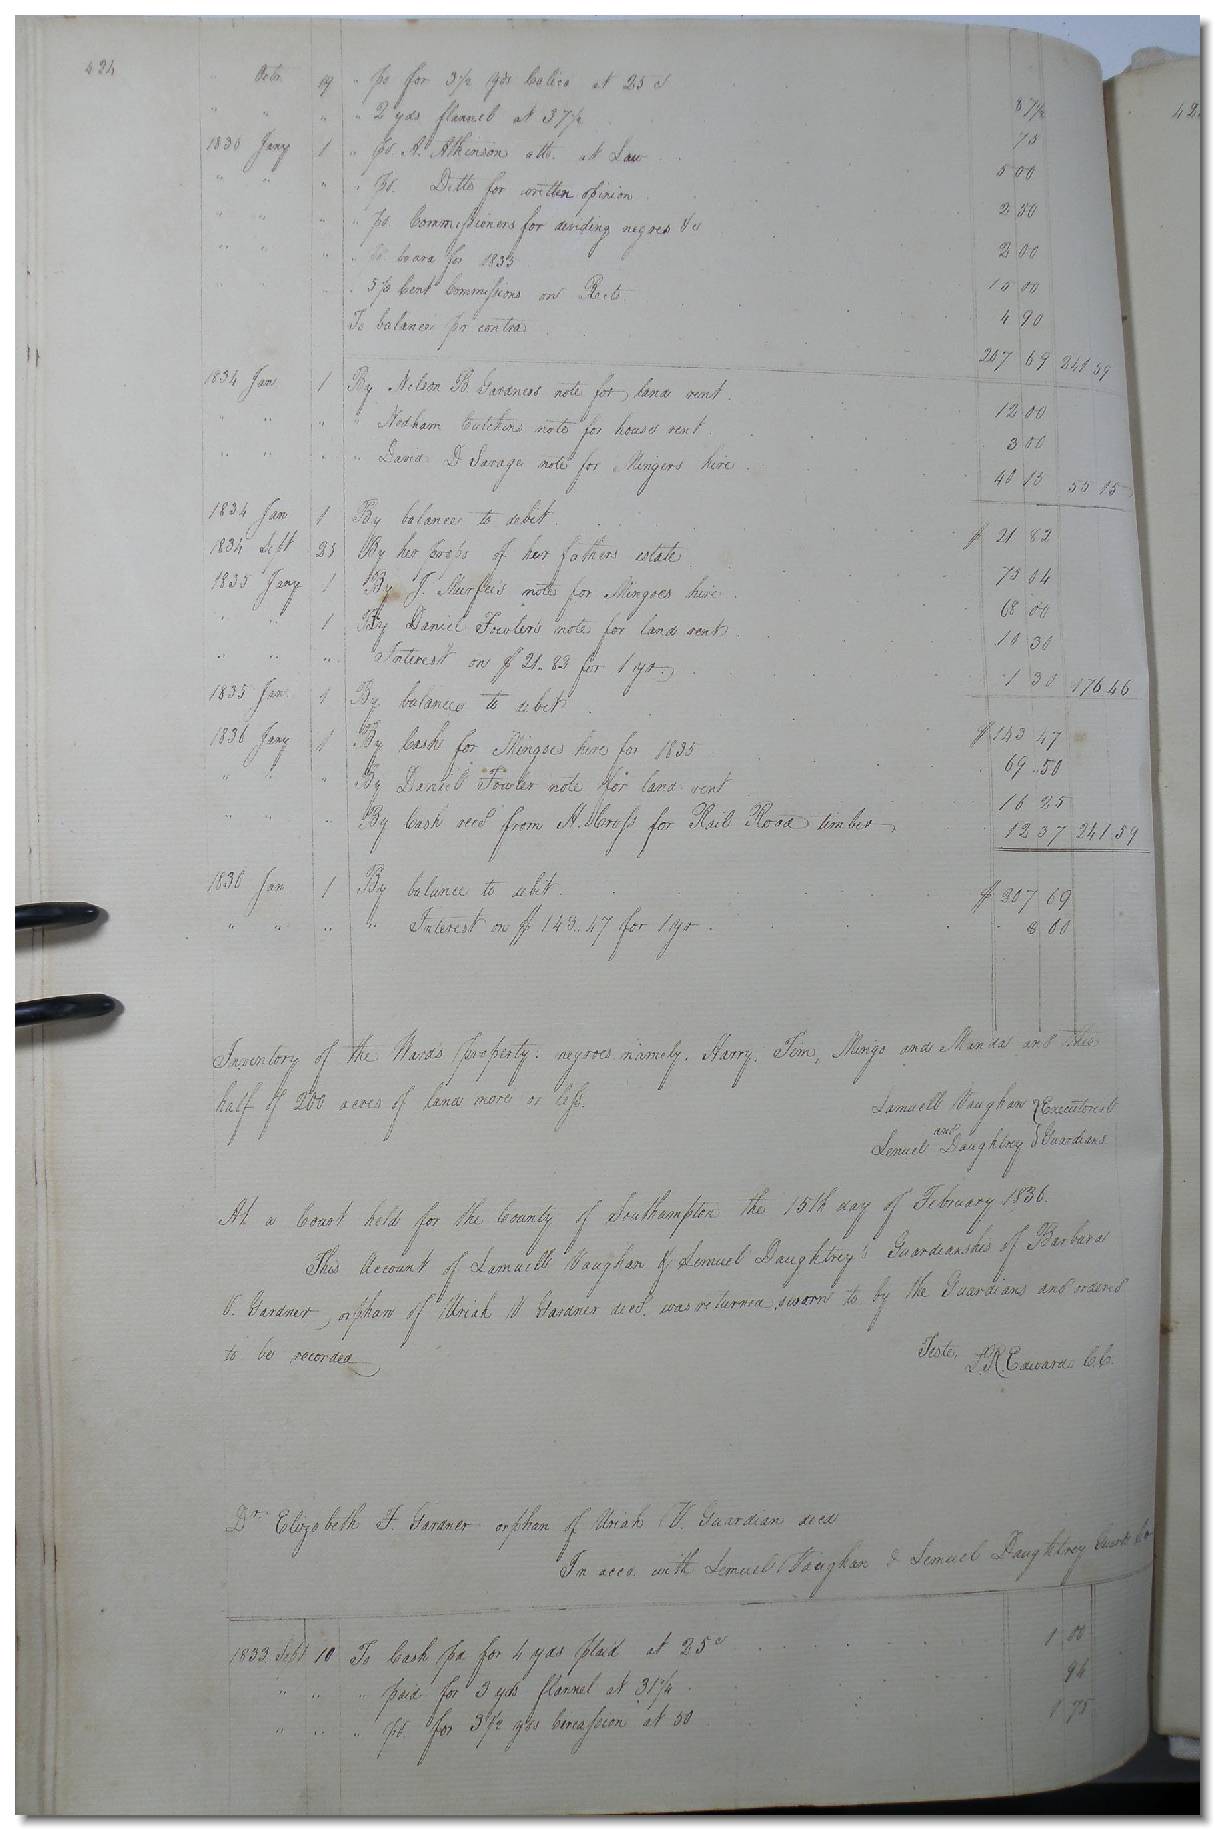 424
" Octr. 19 " pd for 3 1/2 yds Calico at 25 c 87 1/2
" " " " 2 yds flannel at 37 1/2 75
1836 Jany 1 " pd A. Atkinson atto. at Law 5 00
" " " " pd. Ditto for written opinion 2 50
" " " " pd Commissioners for dividing negroes &c 2 00
" " " " pd. board for 1835 15 00
" 5 pr Cent Commissions on Rects 4 90
To balance pr contra 207 69 241 59
1834 Jan 1 By Nelson B. Gardners note for land rent 12 00
" " " " Nedham Cutchins note for house rent 3 00
" " " " David D Savages note for Mingers hire 40 15 55 15
1834 Jan 1 By balance to debit $ 21 82
1834 Sept 25 By her props of her fathers estate 75 04
1835 Jany 1 By J. Murfee's note for Mingoes hire 68 00
" " 1 By Daniel Fowler's note for land rent 10 30
" " " Interest on $ 21.83 for 1 yr. 1 30 176 46
1835 Jan 1 By balance to debit $ 143 47
1836 Jany 1 By Cash for Mingoes hire for 1835 69 .. 50
" " " By Daniel Fowler note for land rent 16 25
" " " By Cash recd from H. Cross for Rail Road timber 12 37 241 59
1836 Jan 1 By balance to debit $ 207 69
" " " " Interest on $ 143..47 for 1 yr 8 60
Inventory of the Wards property. negroes, namely. Harry, Tim, Mingo and Manda and the
half of 200 acres of land more or less.
Lamuell Vaughan } Executors &
and
Lemuel Daughtrey } Guardians
At a Court held for the County of Southampton the 15th day of February 1836.
This Account of Lamuell Vaughan & Lemuel Daughtrey's Guardianship of Barbara
V. Gardner, orphan of Uriah V Gardner decd. was returned, sworn to by the Guardians and ordered
to be recorded
Teste, L. R. Edwards C.C.
Dr. Elizebeth F. Gardner orphan of Uriah V. Guardian decd
In acco. with Lemuel Vaughan & Lemuel Daughtrey Guards Cr
1833 Sept 10 To Cash pd for 4 yds plaid at 25 c 1 00
" " " paid for 3 yds flannel at 31 1/4 94
" " " pd for 3 1/2 yds at 50 1 75